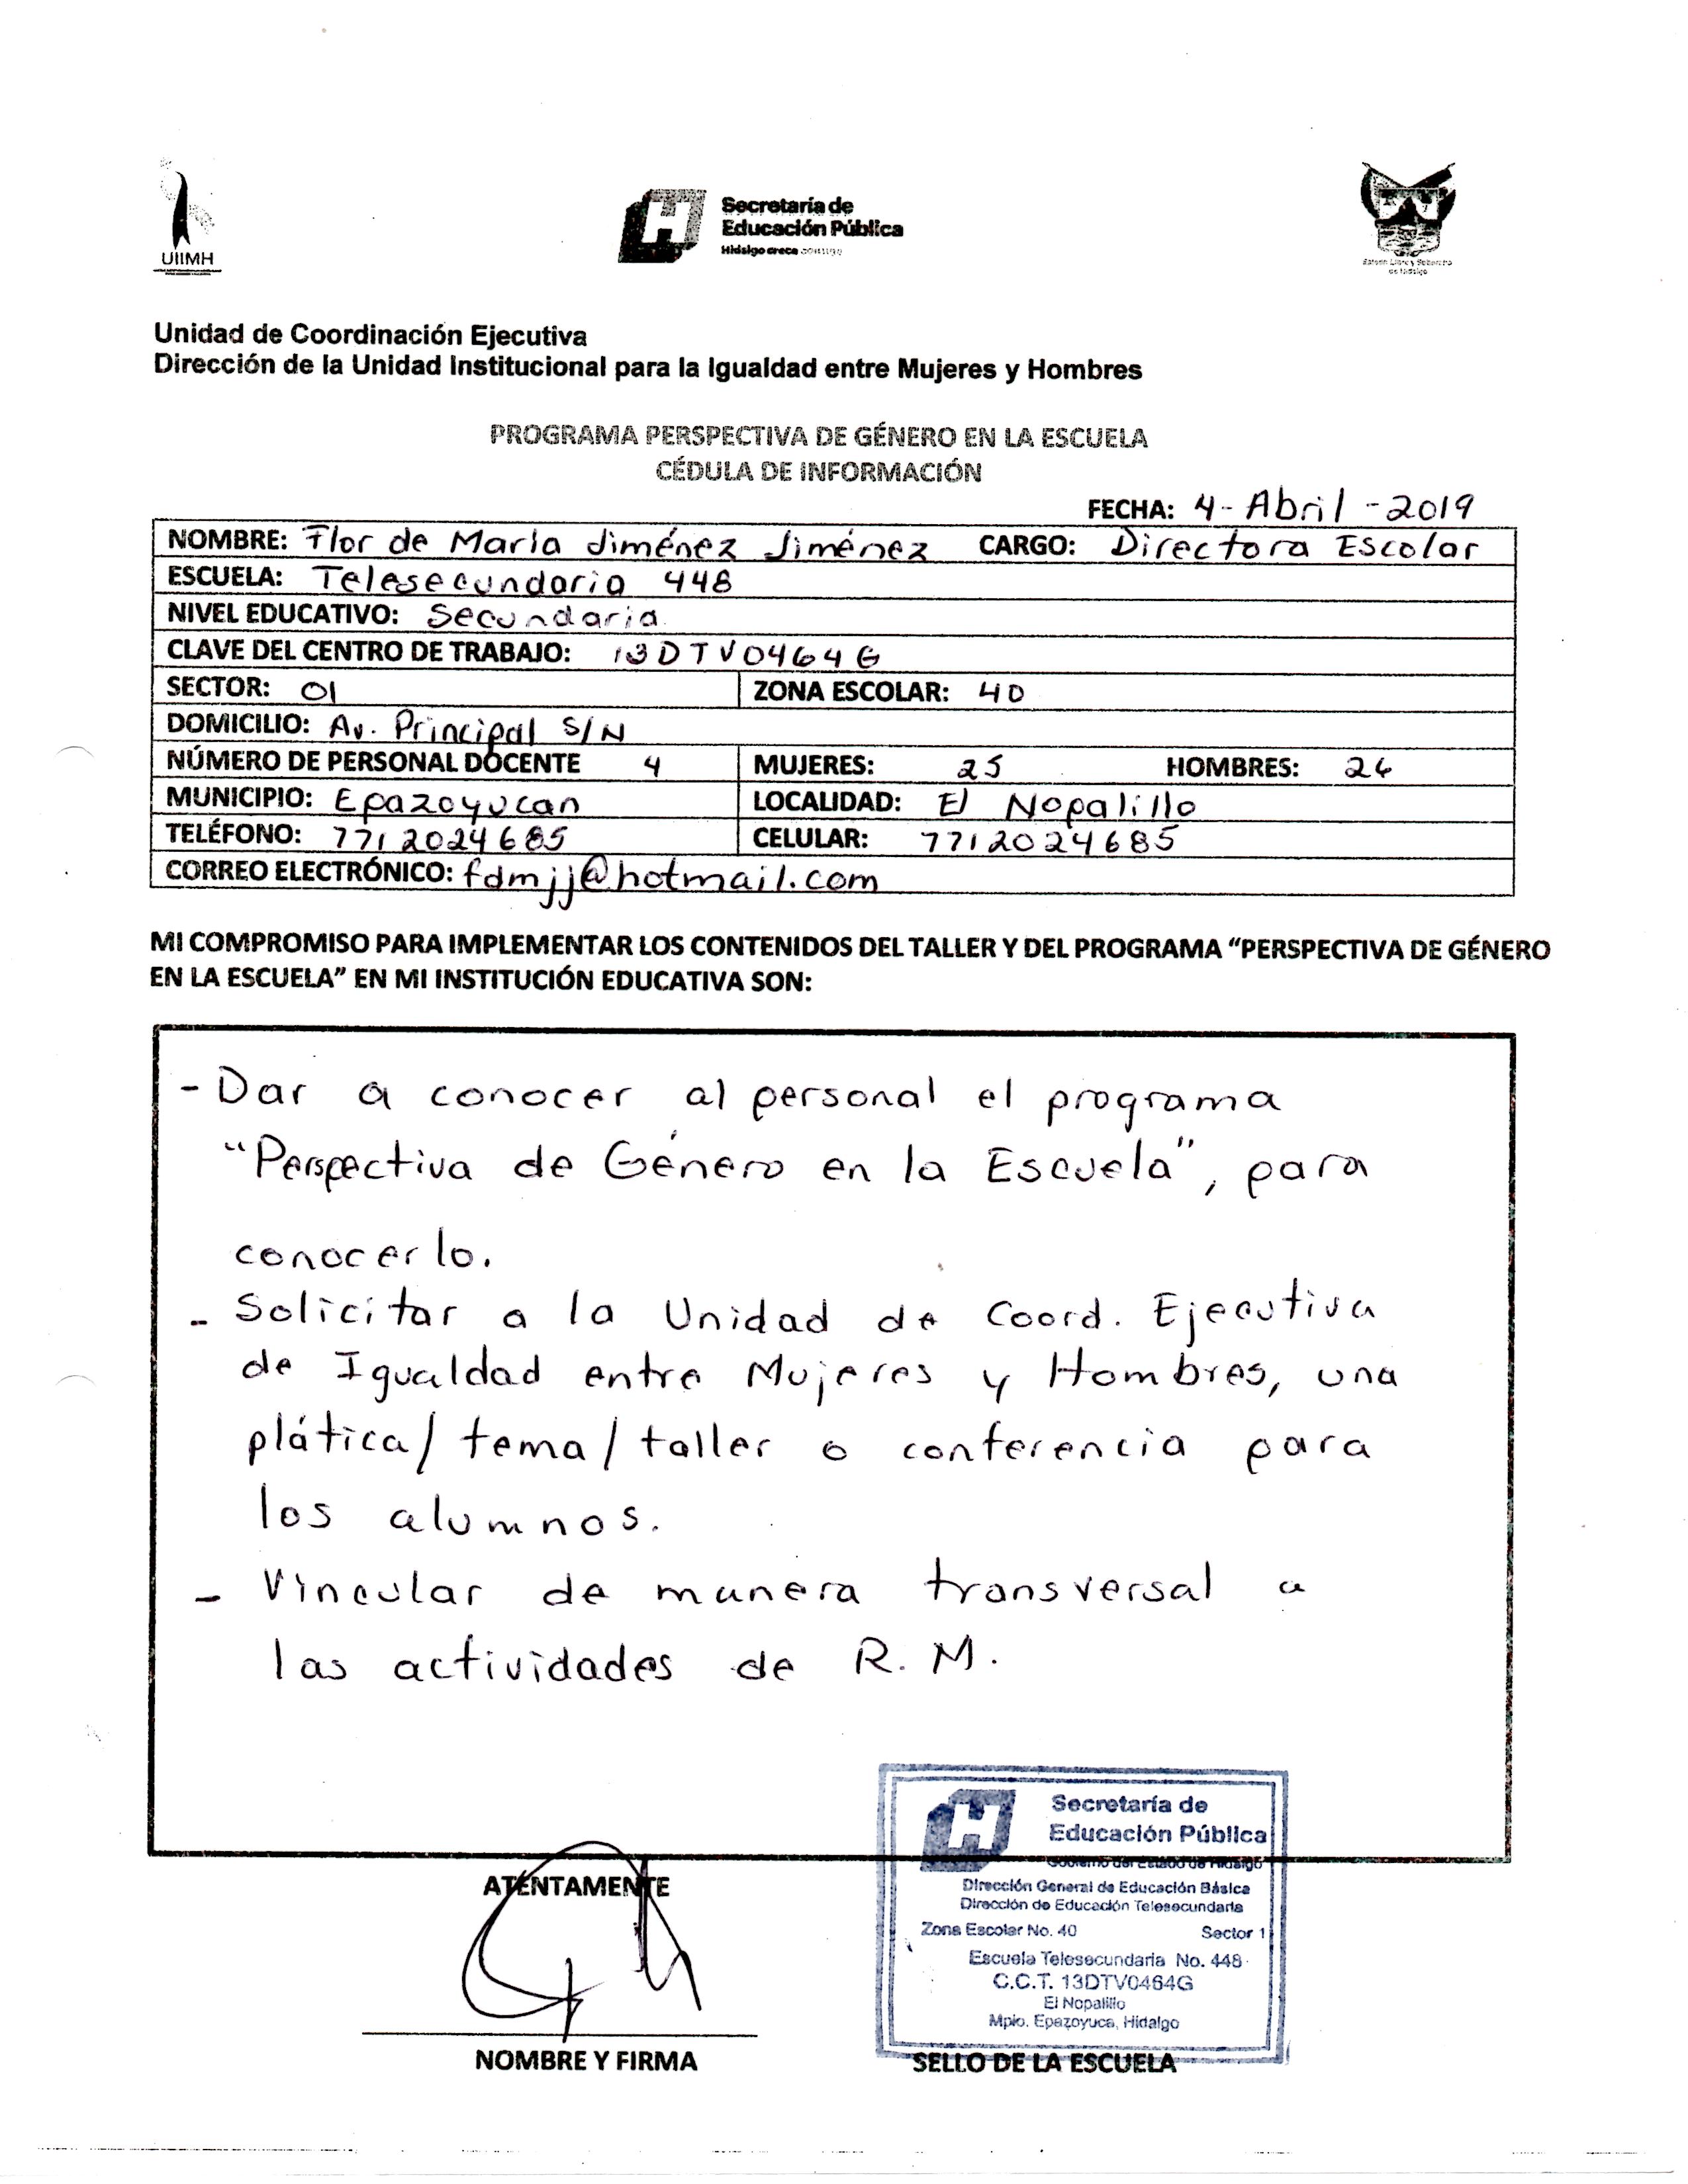 UIIMH
Secretaría de
Educación Pública
Hidalgo crece contigo
Estado Libre y Soberano
de Hidalgo
Unidad de Coordinación Ejecutiva
Dirección de la Unidad Institucional para la Igualdad entre Mujeres y Hombres
PROGRAMA PERSPECTIVA DE GÉNERO EN LA ESCUELA
CÉDULA DE INFORMACIÓN
FECHA: 4-Abril-2019
NOMBRE: Flor de María Jiménez Jiménez CARGO: Directora Escolar
ESCUELA: Telesecundaria 448
NIVEL EDUCATIVO: Secundaria
CLAVE DEL CENTRO DE TRABAJO: 13DTV0464G
SECTOR: 01 ZONA ESCOLAR: 40
DOMICILIO: Av. Principal S/N
NÚMERO DE PERSONAL DOCENTE 4 MUJERES: 25 HOMBRES: 26
MUNICIPIO: Epazoyucan LOCALIDAD: El Nopalillo
TELÉFONO: 7712024685 CELULAR: 7712024685
CORREO ELECTRÓNICO: fdmjj@hotmail.com
MI COMPROMISO PARA IMPLEMENTAR LOS CONTENIDOS DEL TALLER Y DEL PROGRAMA “PERSPECTIVA DE GÉNERO
EN LA ESCUELA” EN MI INSTITUCIÓN EDUCATIVA SON:
- Dar a conocer al personal el programa
“Perspectiva de Género en la Escuela”, para
conocerlo.
- Solicitar a la Unidad de Coord. Ejecutiva
de Igualdad entre Mujeres y Hombres, una
plática/ tema/ taller o conferencia para
los alumnos.
- Vincular de manera transversal a
las actividades de R.M.
Secretaría de
Educación Pública
Gobierno del Estado de Hidalgo
Dirección General de Educación Básica
Dirección de Educación Telesecundaria
Zona Escolar No. 40 Sector 1
Escuela Telesecundaria No. 448
C.C.T. 13DTV0464G
El Nopalillo
Mpio. Epazoyuca, Hidalgo
ATENTAMENTE
NOMBRE Y FIRMA
SELLO DE LA ESCUELA